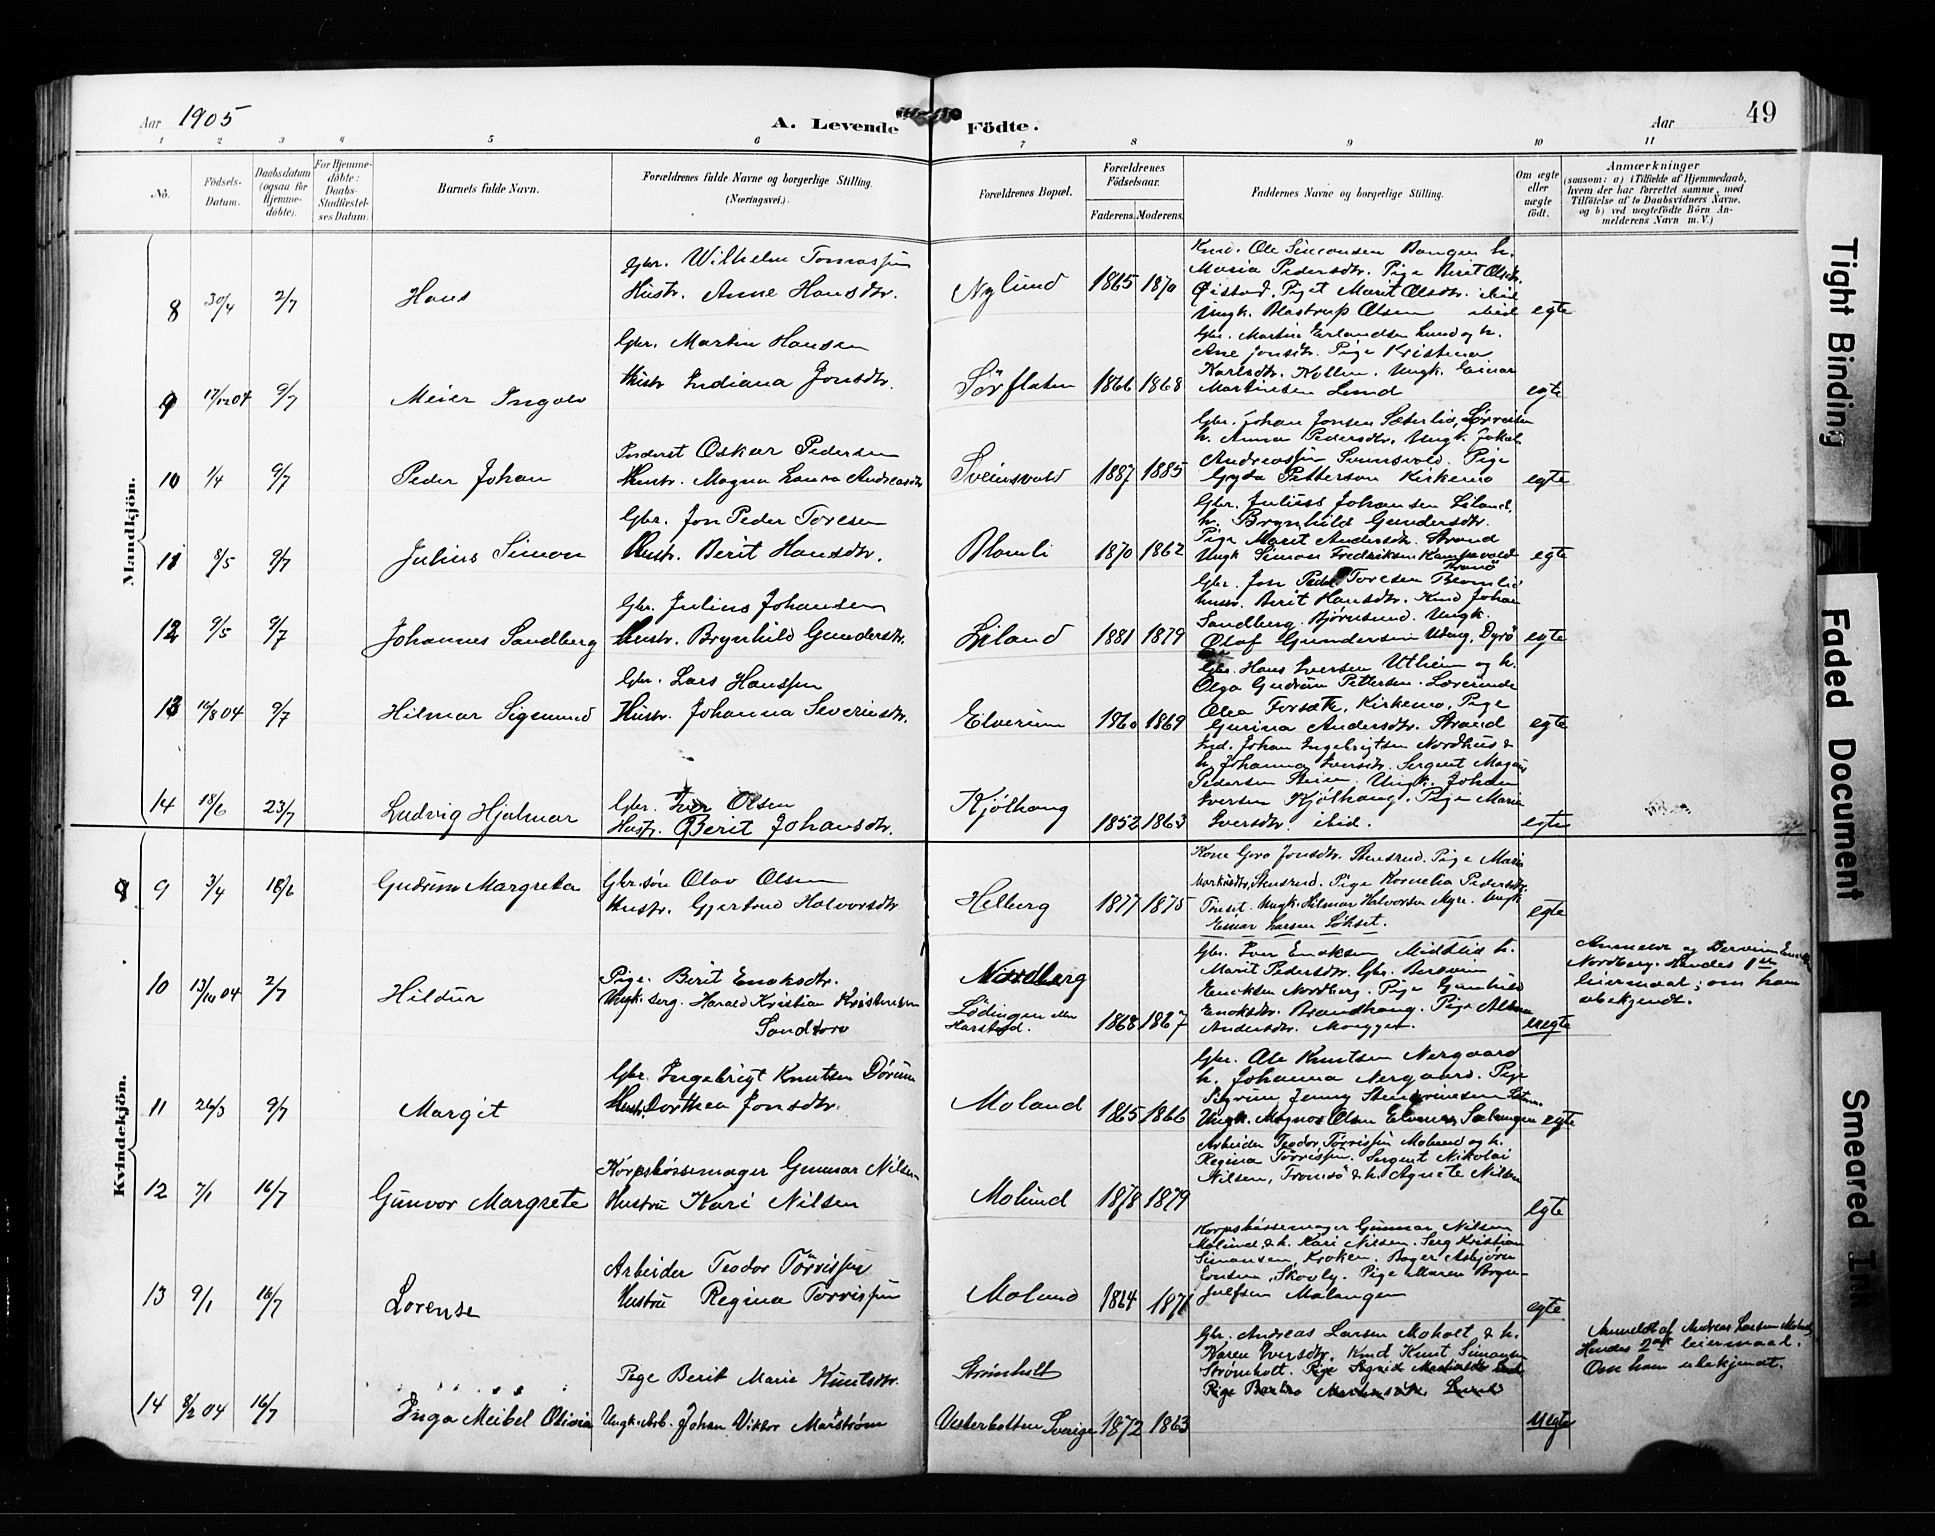 Aar 1905
A. Levende Födte.
Aar
49
1 2 3 4 5 6 7 8 9 10 11
No.
Födsels-Datum.
Daabsdatum (ogsaa for Hjemme-döbte).
For Hjemme-döbte: Daabs-Stadfæstel-ses Datum.
Barnets fulde Navn.
Forældrenes fulde Navne og borgerlige Stilling. (Næringsvei.)
Forældrenes Bopæl.
Forældrenes Födselsaar.
Faderens. Moderens.
Faddernes Navne og borgerlige Stilling.
Om ægte eller uægte födt.
Anmærkninger
(saasom: a) i Tilfælde af Hjemmedaab,
hvem der har forrettet samme, med
Tilföielse af to Daabsvidners Navne.
og b) ved uægtefödte Börn An-
melderens Navn m. V.)
Mandkjön.
8 30/4 2/7 Hans
Gbr. Wilhelm Tomassen
Hustr. Anne Hansdtr.
Nylund 1865 1870
Kmd. Ole Simonsen Bangen h.
Maria Pedersdtr. Pige Berit Olsdtr.
Øistad. Pige Marit Olsdtr. ibid
Ungk. Olsen ibid
egte
9 17/12 04 9/7 Meier Ingolv
Gbr. Martin Hansen
Hustr Indiana Jonsdtr.
Sørflaten 1866 1868
Gbr. Martin Erlandsen Lund og h.
Ane Jonsdtr. Pige Kristina
Karlsdtr. Kollen. Ungk. Einar
Martinsen Lund
egte
10 1/4 9/7 Peder Johan
Inderst Oskar Pedersen
Hustr. Magna Laura Andreasdtr
Sveinsvold 1887 1885
Gbr. Johan Jonsen Sæterlid, Sørreisen
h. Anna Pedersdtr. Ungk. Jokal
Andreassen Sveinsvold. Pige
Gyda Petterson Kirkemo
egte
11 8/5 9/7 Julius Simon
Gbr. Jon Peder Toresen
Hustr. Berit Hansdtr.
Blomli 1870 1862
Gbr. Julius Johansen Liland,
h. Brynhild Gundersdtr.
Pige Marit Andersdtr. Strand
Ungk Simon Fredriksen Kampevold
Tranö
egte
12 9/5 9/7 Johannes Sandberg
Gbr. Julius Johansen
Hustr. Brynhild Gundersdtr.
Liland 1881 1879
Gbr. Jon Peder Toresen Blomlid
hustr. Berit Hansdtr. Kmd Johan
Sandberg. Bjørnsund. Ungk.
Olaf Gundersen Dyrö
egte
13 16/8 04 9/7 Hilmar Sigmund
Gbr. Lars Hanssen
Hustr. Johanna Severinsdtr.
Elverum 1860 1869
Gbr. Hans Iversen Utheim og h.
Olga Gudrun Pettersen. Lærerinde
Olea Forsæth, Kirkemo, Pige
Gurina Andersdtr. Strand
egte
14 18/6 23/7 Ludvig Hjalmar
Gbr. Iver Olsen
Hustr. Berit Johansdtr.
Kjølhaug 1852 1863
Ind. Johan Ingebrigtsen Nordhus &
h. Johanna Iversdtr. Sergent Magnus
Pedersen Steien. Ungk. Johan
Iversen Kjølhaug. Pige Marie
Iversdtr. ibid.
egte
Kvindekjön.
9 3/4 18/6 Gudrun Margreta
Gbr.søn Olav Olsen
Hustr. Gjertrud Halvorsdtr
Helberg 1877 1875
Kone Goro Jonsdtr. Stensrud. Pige Marie
Markusdtr, Stensrud. Pige Kornelia Pedersdtr.
Ungk. Hilmar Halvorsen Myre. Ungk
Einar Larsen Løkset.
egte
10 13/10 04 2/7 Hildur
Pige. Berit Enoksdtr.
Ungk. Serg. Harald Kristian Kristensen
Sandtorv
Nordberg
Lødingen eller
Harstad. 1868 1867
Gbr. Iver Enoksen Midtlid h.
Marit Pedersdtr. Gbr. Bersvein
Enoksen Nordberg. Pige Gunhild
Enoksdtr. Brandhaug. Pige
Andersdtr.
uegte
Anmeldr og Bersvein Enoksen
Nordberg. Hendes 1ste
leiermaal; om ham
ubekjendt.
11 26/3 9/7 Margit
Gbr. Ingebrigt Knutsen Dørum
Hust. Dorthea Jonsdtr.
Moland 1865 1866
Gbr. Ole Knutsen Nergaard
h. Johanna Nergaard. Pige
Sigrun Jenny
Ungk. Magnus Olsen Elvenes, Salangen
egte
12 7/1 16/7 Gunvor Margrete
Korpsbøssemager Gunnar Nilsen
Hustru Kari Nilsen
Molund 1878 1879
Arbeider Teodor Tørrissen Molund og h.
Regina Tørrissen. Sergent Nikolai
Nilsen, Tromsö & h. Agnete Nilsen
egte
13 9/1 16/7 Lorense
Arbeider Teodor Tørrissen
Hustru Regina Tørrissen
Molund 1864 1871
Korpsbøssemager Gunnar Nilsen
Molund, & h. Kari Nilsen. Serg Kristian
Simonsen Kroken. Bager Asbjørn
Jonsen, Skovly. Pige Maren Bryn-
julfsen Malangen
egte
14 8/2 04 16/7 Inga Meibel Olivia
Pige Berit Marie Knutsdtr.
Ungk. Arb. Johan Viktor Marstrøm
Strømholt
Vesterbotten Sverige 1872 1863
Gbr. Andreas Larsen Moholt & h.
Karen Iversdtr. Kmd Knut Simonsen
Strømholt. Pige Sigrid
Pige Lund
uegte
Anmeldt af Andreas Larsen Moholt,
Hendes 2det leiermaal.
Om ham ubekjendt.
Tight Binding
Faded Document
Smeared Ink